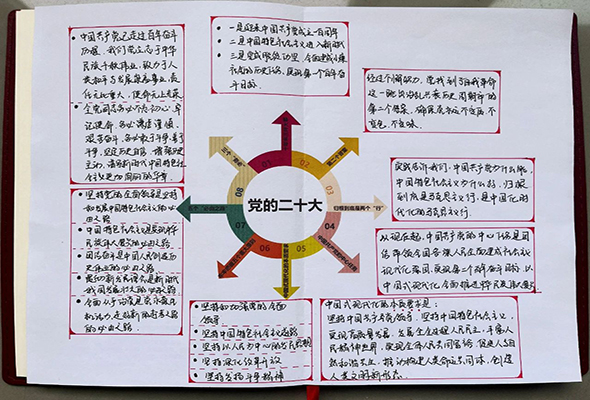 • 中国共产党已走过百年奋斗
历程。我们党立志于中华
民族千秋伟业，致力于人
类和平与发展崇高事业，责
任无比重大，使命无上光荣。
• 全党同志务必不忘初心、牢
记使命，务必谦虚谨慎、
艰苦奋斗，务必敢于斗争、善于
斗争，坚定历史自信，增强历史
主动，谱写新时代中国特色社
会主义更加绚丽的华章。
• 一是迎来中国共产党成立一百周年
• 二是中国特色社会主义进入新时代
• 三是完成脱贫攻坚、全面建成小康
社会的历史任务，实现第一个百年奋
斗目标。
经过不懈努力，党找到了自我革命
这一跳出治乱兴衰历史周期率的
第二个答案，确保党永远不变质、不
变色、不变味。
实践告诉我们，中国共产党为什么能，
中国特色社会主义为什么好，归根
到底是马克思主义行，是中国化时
代化的马克思主义行。
从现在起，中国共产党的中心任务是团
结带领全国各族人民全面建成社会主义
现代化强国、实现第二个百年奋斗目标，以
中国式现代化全面推进中华民族伟大复兴
中国式现代化的本质要求是：
坚持中国共产党领导，坚持中国特色社会主义，
实现高质量发展，发展全过程人民民主，丰富人
民精神世界，实现全体人民共同富裕，促进人与自
然和谐共生，推动构建人类命运共同体，创造
人类文明新形态。
• 坚持和加强党的全面
领导
• 坚持中国特色社会主义道路
• 坚持以人民为中心的发展思想
• 坚持深化改革开放
• 坚持发扬斗争精神
• 坚持党的全面领导是坚持
和发展中国特色社会主义的必
由之路
• 中国特色社会主义是实现中华
民族伟大复兴的必由之路
• 团结奋斗是中国人民创造历
史伟业的必由之路
• 贯彻新发展理念是新时代
我国发展壮大的必由之路
• 全面从严治党是党永葆生
机活力、走好新的赶考之路
的必由之路
党的二十大
01
02
03
04
05
06
07
08
归根到底是两个“行”